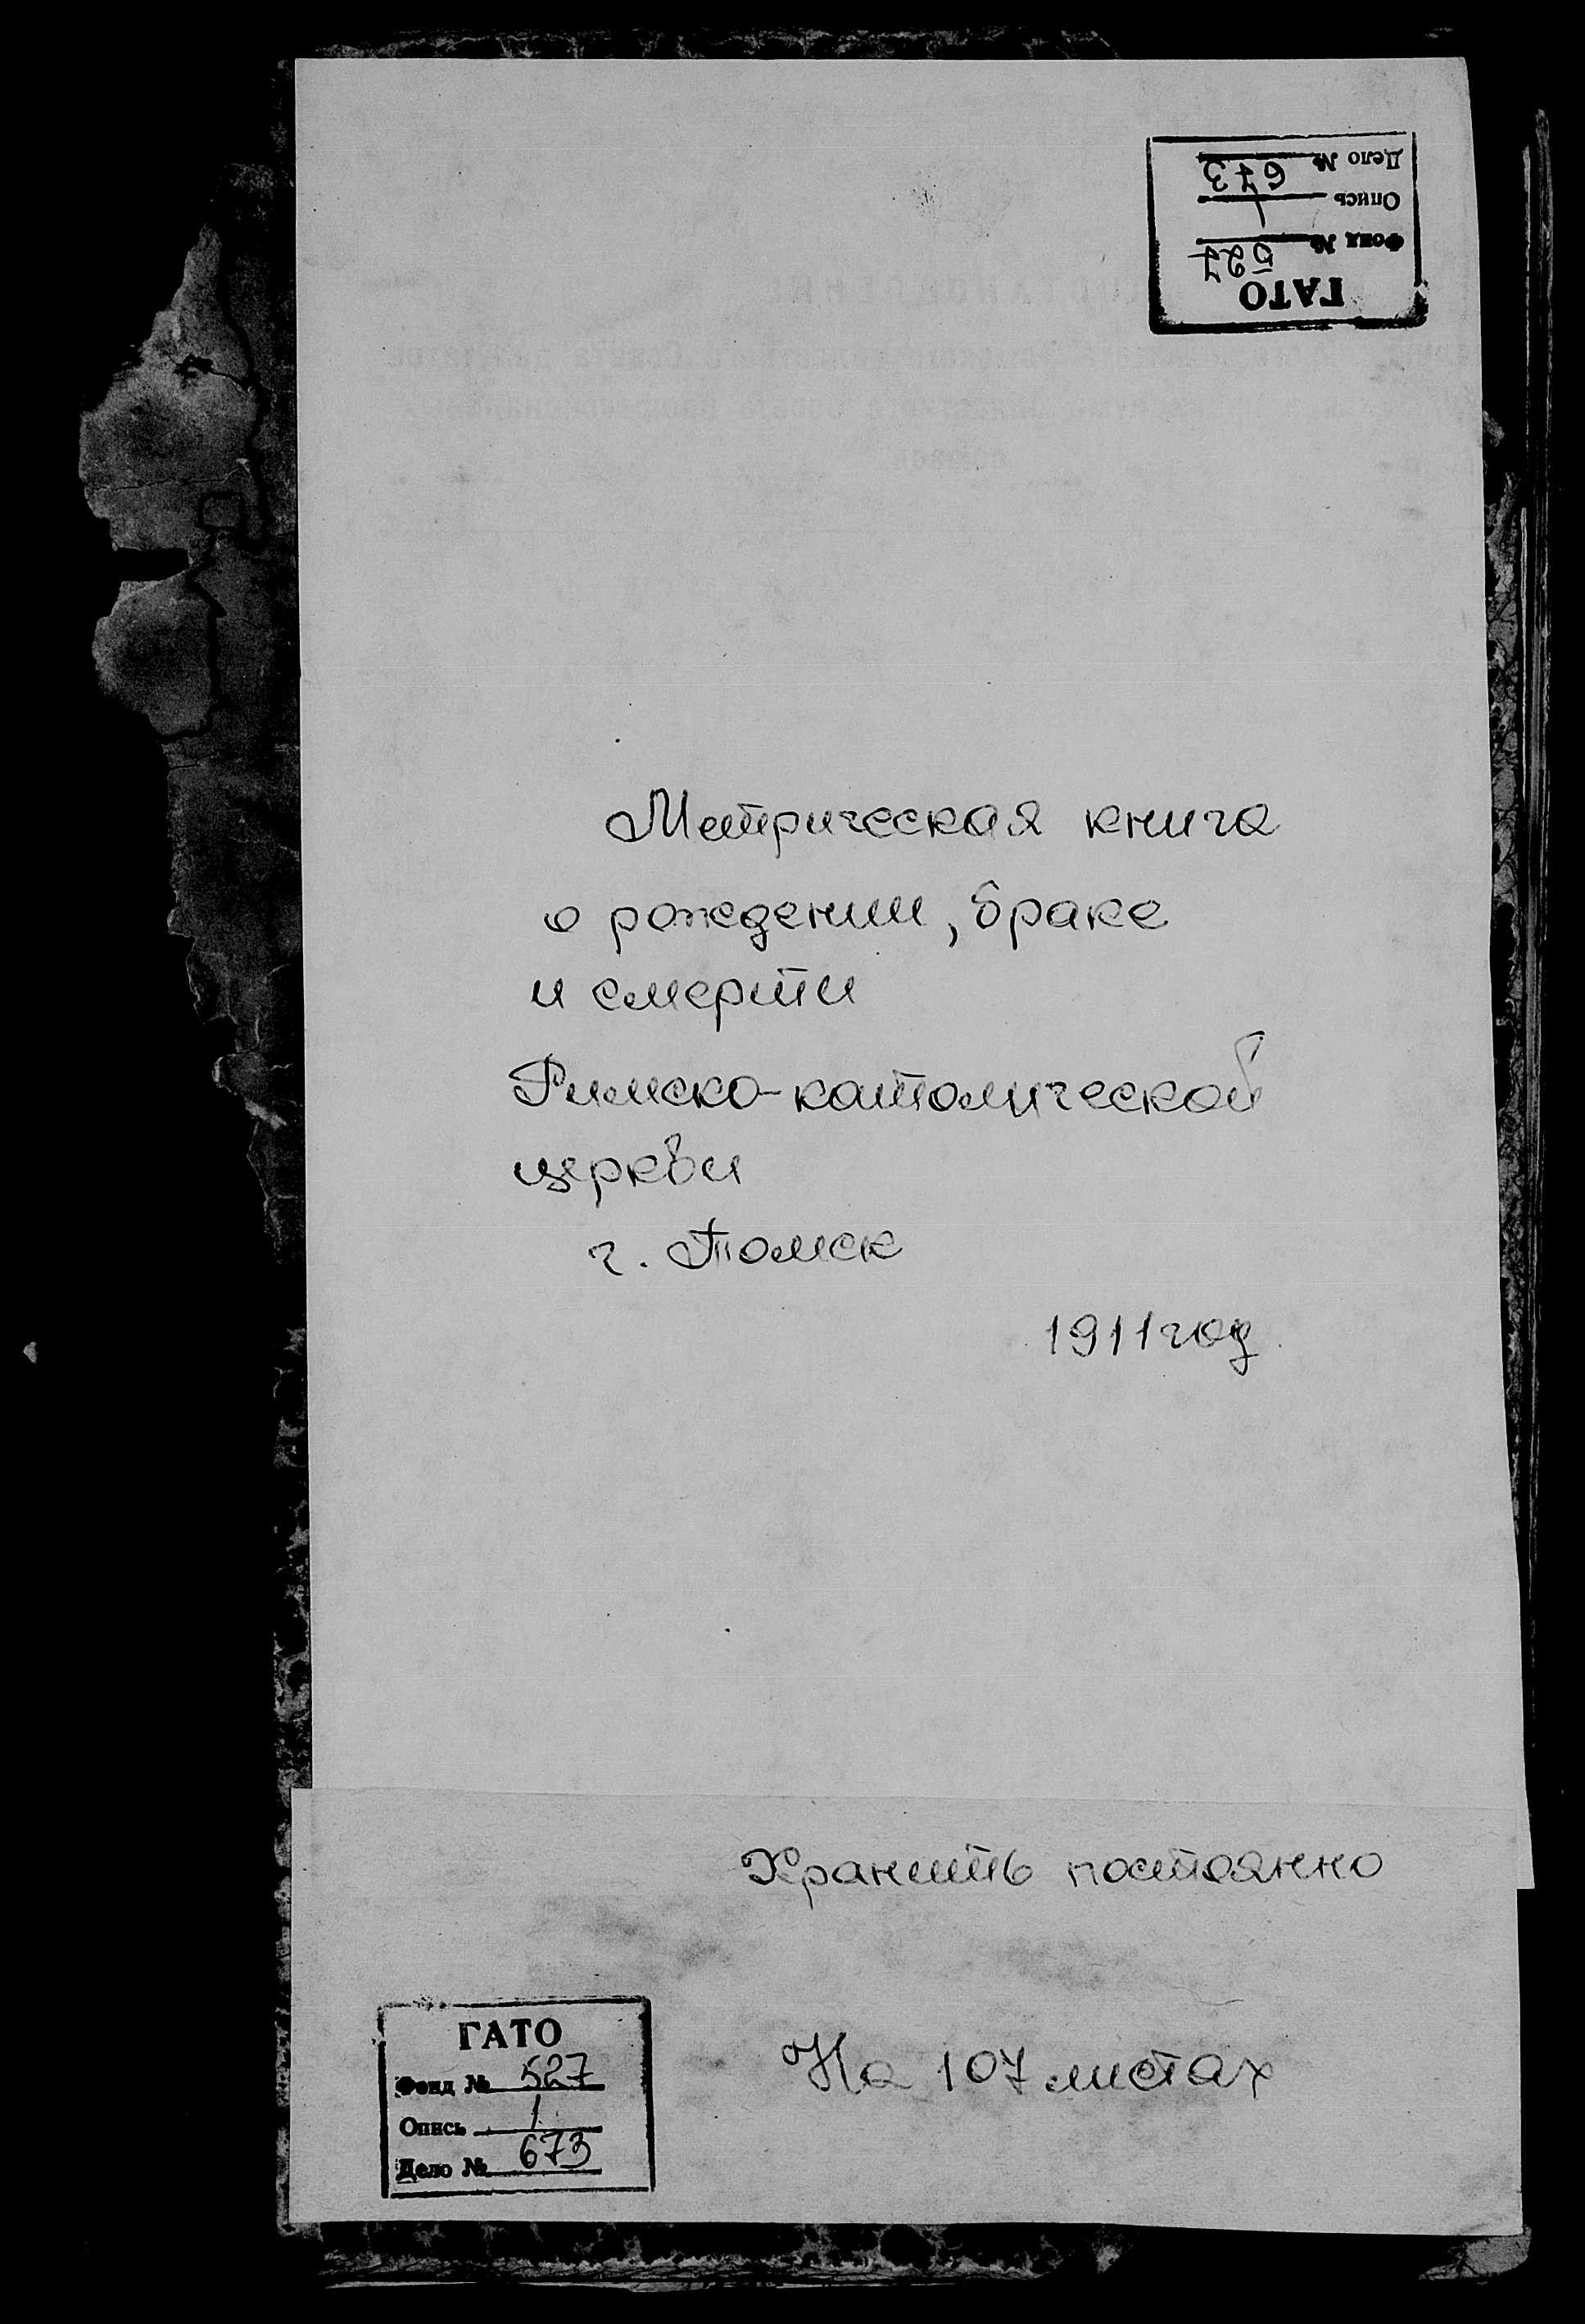 Дело № 673
Опись 1
Фонд № 527
ГАТО
Метрическая книга
о рождении, браке
и смерти
Римско-католической
церкви
г. Томск
1911 год
Хранить постоянно
На 107 листах
ГАТО
Фонд № 527
Опись 1
Дело № 673